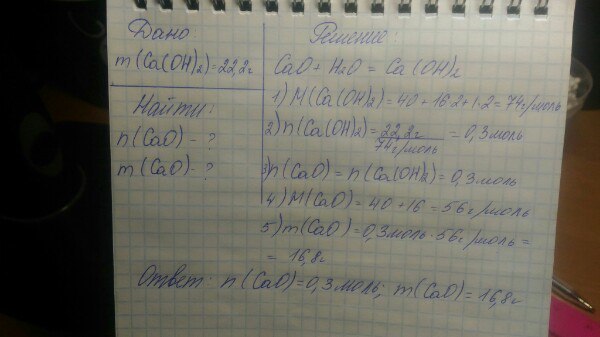 Дано
m(Ca(OH)₂)=22,2г
Найти:
n(CaO) - ?
m(CaO) - ?
Решение:
CaO + H₂O = Ca(OH)₂
1) M(Ca(OH)₂) = 40 + 16·2 + 1·2 = 74г/моль
2) n(Ca(OH)₂) = 22,2г / 74г/моль = 0,3 моль
3) n(CaO) = n(Ca(OH)₂) = 0,3 моль
4) M(CaO) = 40 + 16 = 56г/моль
5) m(CaO) = 0,3 моль · 56г/моль =
= 16,8г
Ответ: n(CaO) = 0,3 моль; m(CaO) = 16,8г